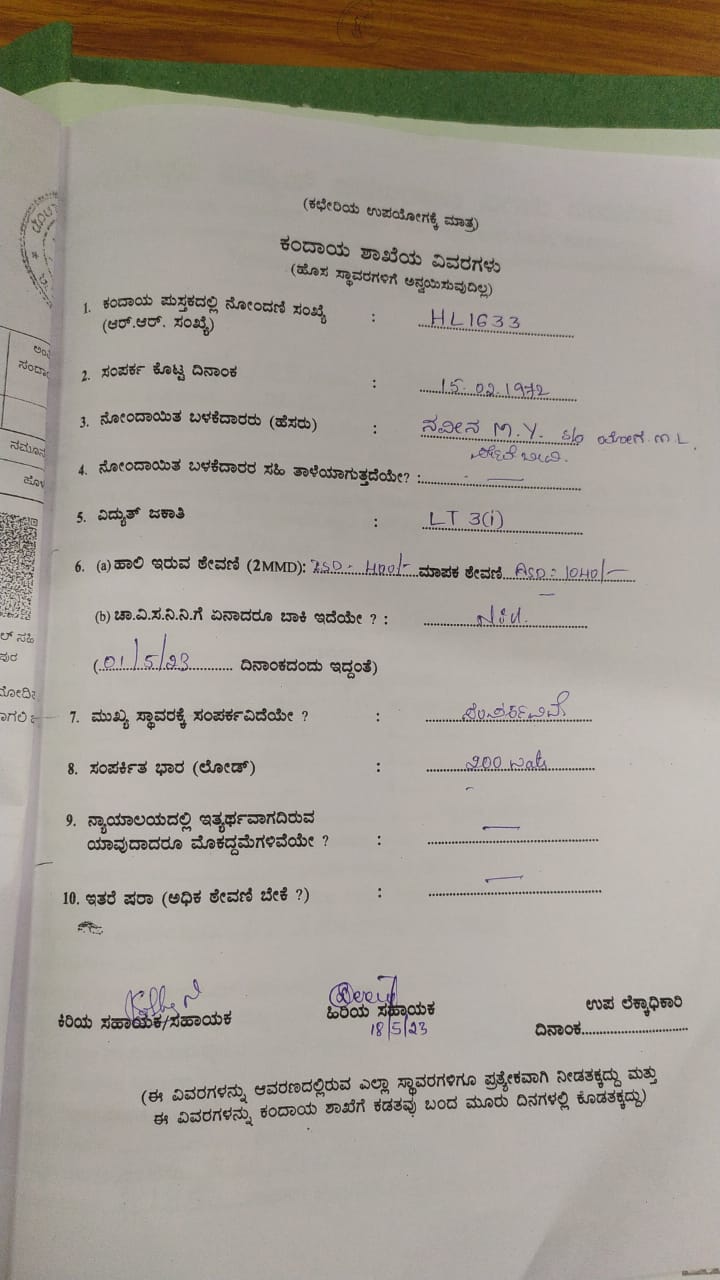 (ಕಛೇರಿಯ ಉಪಯೋಗಕ್ಕೆ ಮಾತ್ರ)
ಕಂದಾಯ ಶಾಖೆಯ ವಿವರಗಳು
(ಹೊಸ ಸ್ಥಾವರಗಳಿಗೆ ಅನ್ವಯಿಸುವುದಿಲ್ಲ)
1. ಕಂದಾಯ ಪುಸ್ತಕದಲ್ಲಿ ನೋಂದಣಿ ಸಂಖ್ಯೆ
(ಆರ್.ಆರ್. ಸಂಖ್ಯೆ) : HL1633
2. ಸಂಪರ್ಕ ಕೊಟ್ಟ ದಿನಾಂಕ : 15.02.1972
3. ನೋಂದಾಯಿತ ಬಳಕೆದಾರರು (ಹೆಸರು) : ನವೀನ M.Y. s/o ಯೋಗ. M L.
4. ನೋಂದಾಯಿತ ಬಳಕೆದಾರರ ಸಹಿ ತಾಳೆಯಾಗುತ್ತದೆಯೇ? : —
5. ವಿದ್ಯುತ್ ಜಕಾತಿ : LT 3(i)
6. (a) ಹಾಲಿ ಇರುವ ಠೇವಣಿ (2MMD): ಮಾಪಕ ಠೇವಣಿ ASD = 1040/-
(b) ಚಾ.ವಿ.ಸ.ನಿ.ನಿ.ಗೆ ಏನಾದರೂ ಬಾಕಿ ಇದೆಯೇ ? : Nil.
(01/5/23 ದಿನಾಂಕದಂದು ಇದ್ದಂತೆ)
7. ಮುಖ್ಯ ಸ್ಥಾವರಕ್ಕೆ ಸಂಪರ್ಕವಿದೆಯೇ ? : ಸಂಪರ್ಕವಿದೆ
8. ಸಂಪರ್ಕಿತ ಭಾರ (ಲೋಡ್) : 200 watt
9. ನ್ಯಾಯಾಲಯದಲ್ಲಿ ಇತ್ಯರ್ಥವಾಗದಿರುವ
ಯಾವುದಾದರೂ ಮೊಕದ್ದಮೆಗಳಿವೆಯೇ ? : —
10. ಇತರೆ ಷರಾ (ಅಧಿಕ ಠೇವಣಿ ಬೇಕೆ ?) : —
ಕಿರಿಯ ಸಹಾಯಕ/ಸಹಾಯಕ
ಹಿರಿಯ ಸಹಾಯಕ
18/5/23
ಉಪ ಲೆಕ್ಕಾಧಿಕಾರಿ
ದಿನಾಂಕ
(ಈ ವಿವರಗಳನ್ನು ಆವರಣದಲ್ಲಿರುವ ಎಲ್ಲಾ ಸ್ಥಾವರಗಳಿಗೂ ಪ್ರತ್ಯೇಕವಾಗಿ ನೀಡತಕ್ಕದ್ದು ಮತ್ತು
ಈ ವಿವರಗಳನ್ನು ಕಂದಾಯ ಶಾಖೆಗೆ ಕಡತವು ಬಂದ ಮೂರು ದಿನಗಳಲ್ಲಿ ಕೊಡತಕ್ಕದ್ದು)